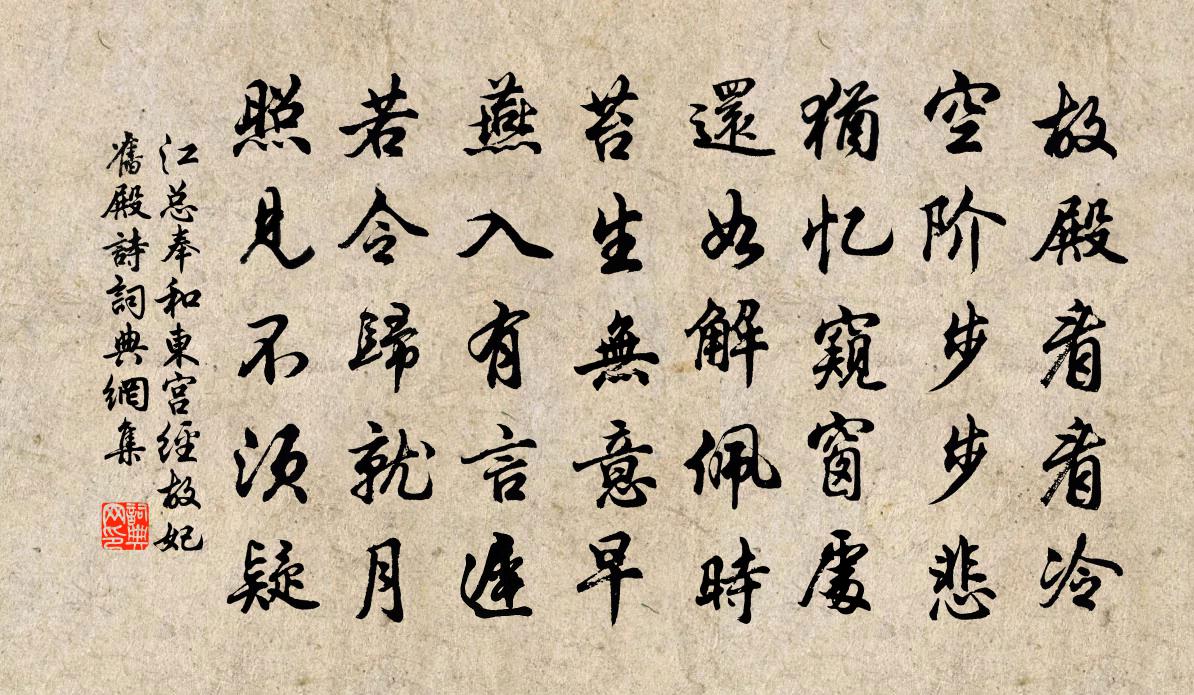 故殿看看冷
空阶步步悲
猶忆窺窗處
還如解佩時
苔生無意早
燕入有言遲
若令歸就月
照見不須疑
江总奉和東宫經故妃
舊殿詩詞典網集
詞典网印